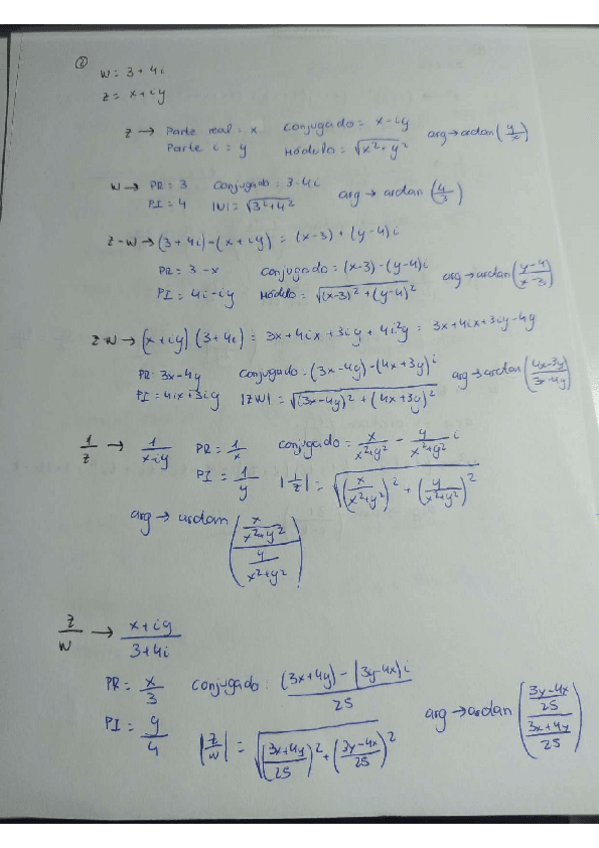 ②
w = 3 + 4i
z = x + iy
z → Parte real = x   conjugado = x - iy   arg → arctan (y/x)
Parte i = y   Módulo = √(x² + y²)
w → PR = 3   Conjugado : 3 - 4i   arg → arctan (4/3)
PI = 4   |W| = √(3² + 4²)
z - w → (3 + 4i) - (x + iy) = (x - 3) + (y - 4)i
PR = 3 - x   conjugado = (x - 3) - (y - 4)i   arg → arctan ((y - 4)/(x - 3))
PI = 4i - iy   Módulo = √((x - 3)² + (y - 4)²)
z w → (x + iy) (3 + 4i) = 3x + 4ix + 3iy + 4i²y = 3x + 4ix + 3iy - 4y
PR = 3x - 4y   conjugado = (3x - 4y) - (4x + 3y)i   arg → arctan ((4x - 3y)/(3x - 4y))
PI = 4ix + 3iy   |ZW| = √((3x - 4y)² + (4x + 3y)²)
1/z → 1/(x - iy)   PR = 1/x   conjugado = x/(x² + y²) - y/(x² + y²) i
PI = 1/y   |1/z| = √((x/(x² + y²))² + (y/(x² + y²))²)
arg → arctan ((x/(x² + y²))/(y/(x² + y²)))
z/w → (x + iy)/(3 + 4i)
PR = x/3   conjugado : ((3x + 4y) - (3y - 4x)i)/25   arg → arctan (((3y - 4x)/25)/((3x + 4y)/25))
PI = y/4   |z/w| = √(((3x + 4y)/25)² + ((3y - 4x)/25)²)